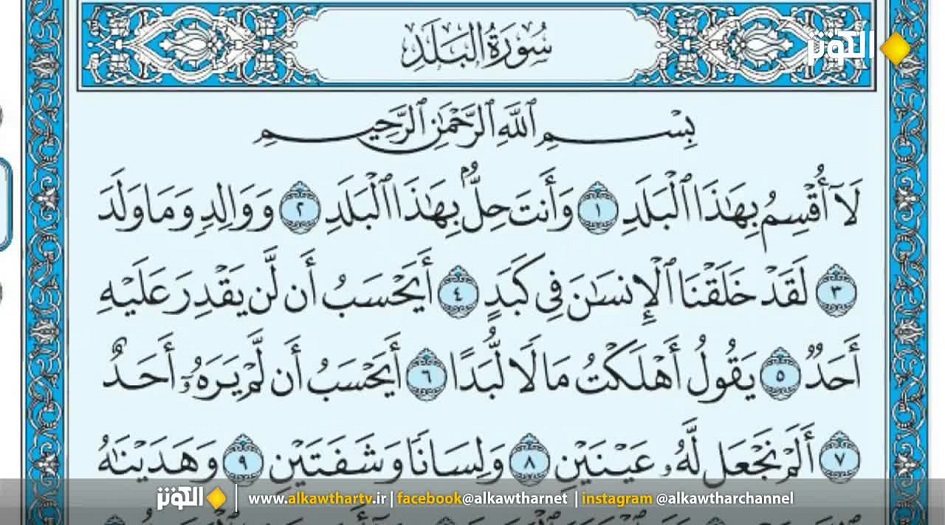 الكوثر
سُورَةُ الْبَلَدِ
بِسْمِ اللَّهِ الرَّحْمَٰنِ الرَّحِيمِ
لَا أُقْسِمُ بِهَٰذَا الْبَلَدِ ١ وَأَنتَ حِلٌّ بِهَٰذَا الْبَلَدِ ٢ وَوَالِدٍ وَمَا وَلَدَ
٣ لَقَدْ خَلَقْنَا الْإِنسَٰنَ فِي كَبَدٍ ٤ أَيَحْسَبُ أَن لَّن يَقْدِرَ عَلَيْهِ
أَحَدٌ ٥ يَقُولُ أَهْلَكْتُ مَالًا لُّبَدًا ٦ أَيَحْسَبُ أَن لَّمْ يَرَهُۥٓ أَحَدٌ
٧ أَلَمْ نَجْعَل لَّهُۥ عَيْنَيْنِ ٨ وَلِسَانًا وَشَفَتَيْنِ ٩ وَهَدَيْنَٰهُ
الكوثر | www.alkawthartv.ir | facebook@alkawtharnet | instagram @alkawtharchannel